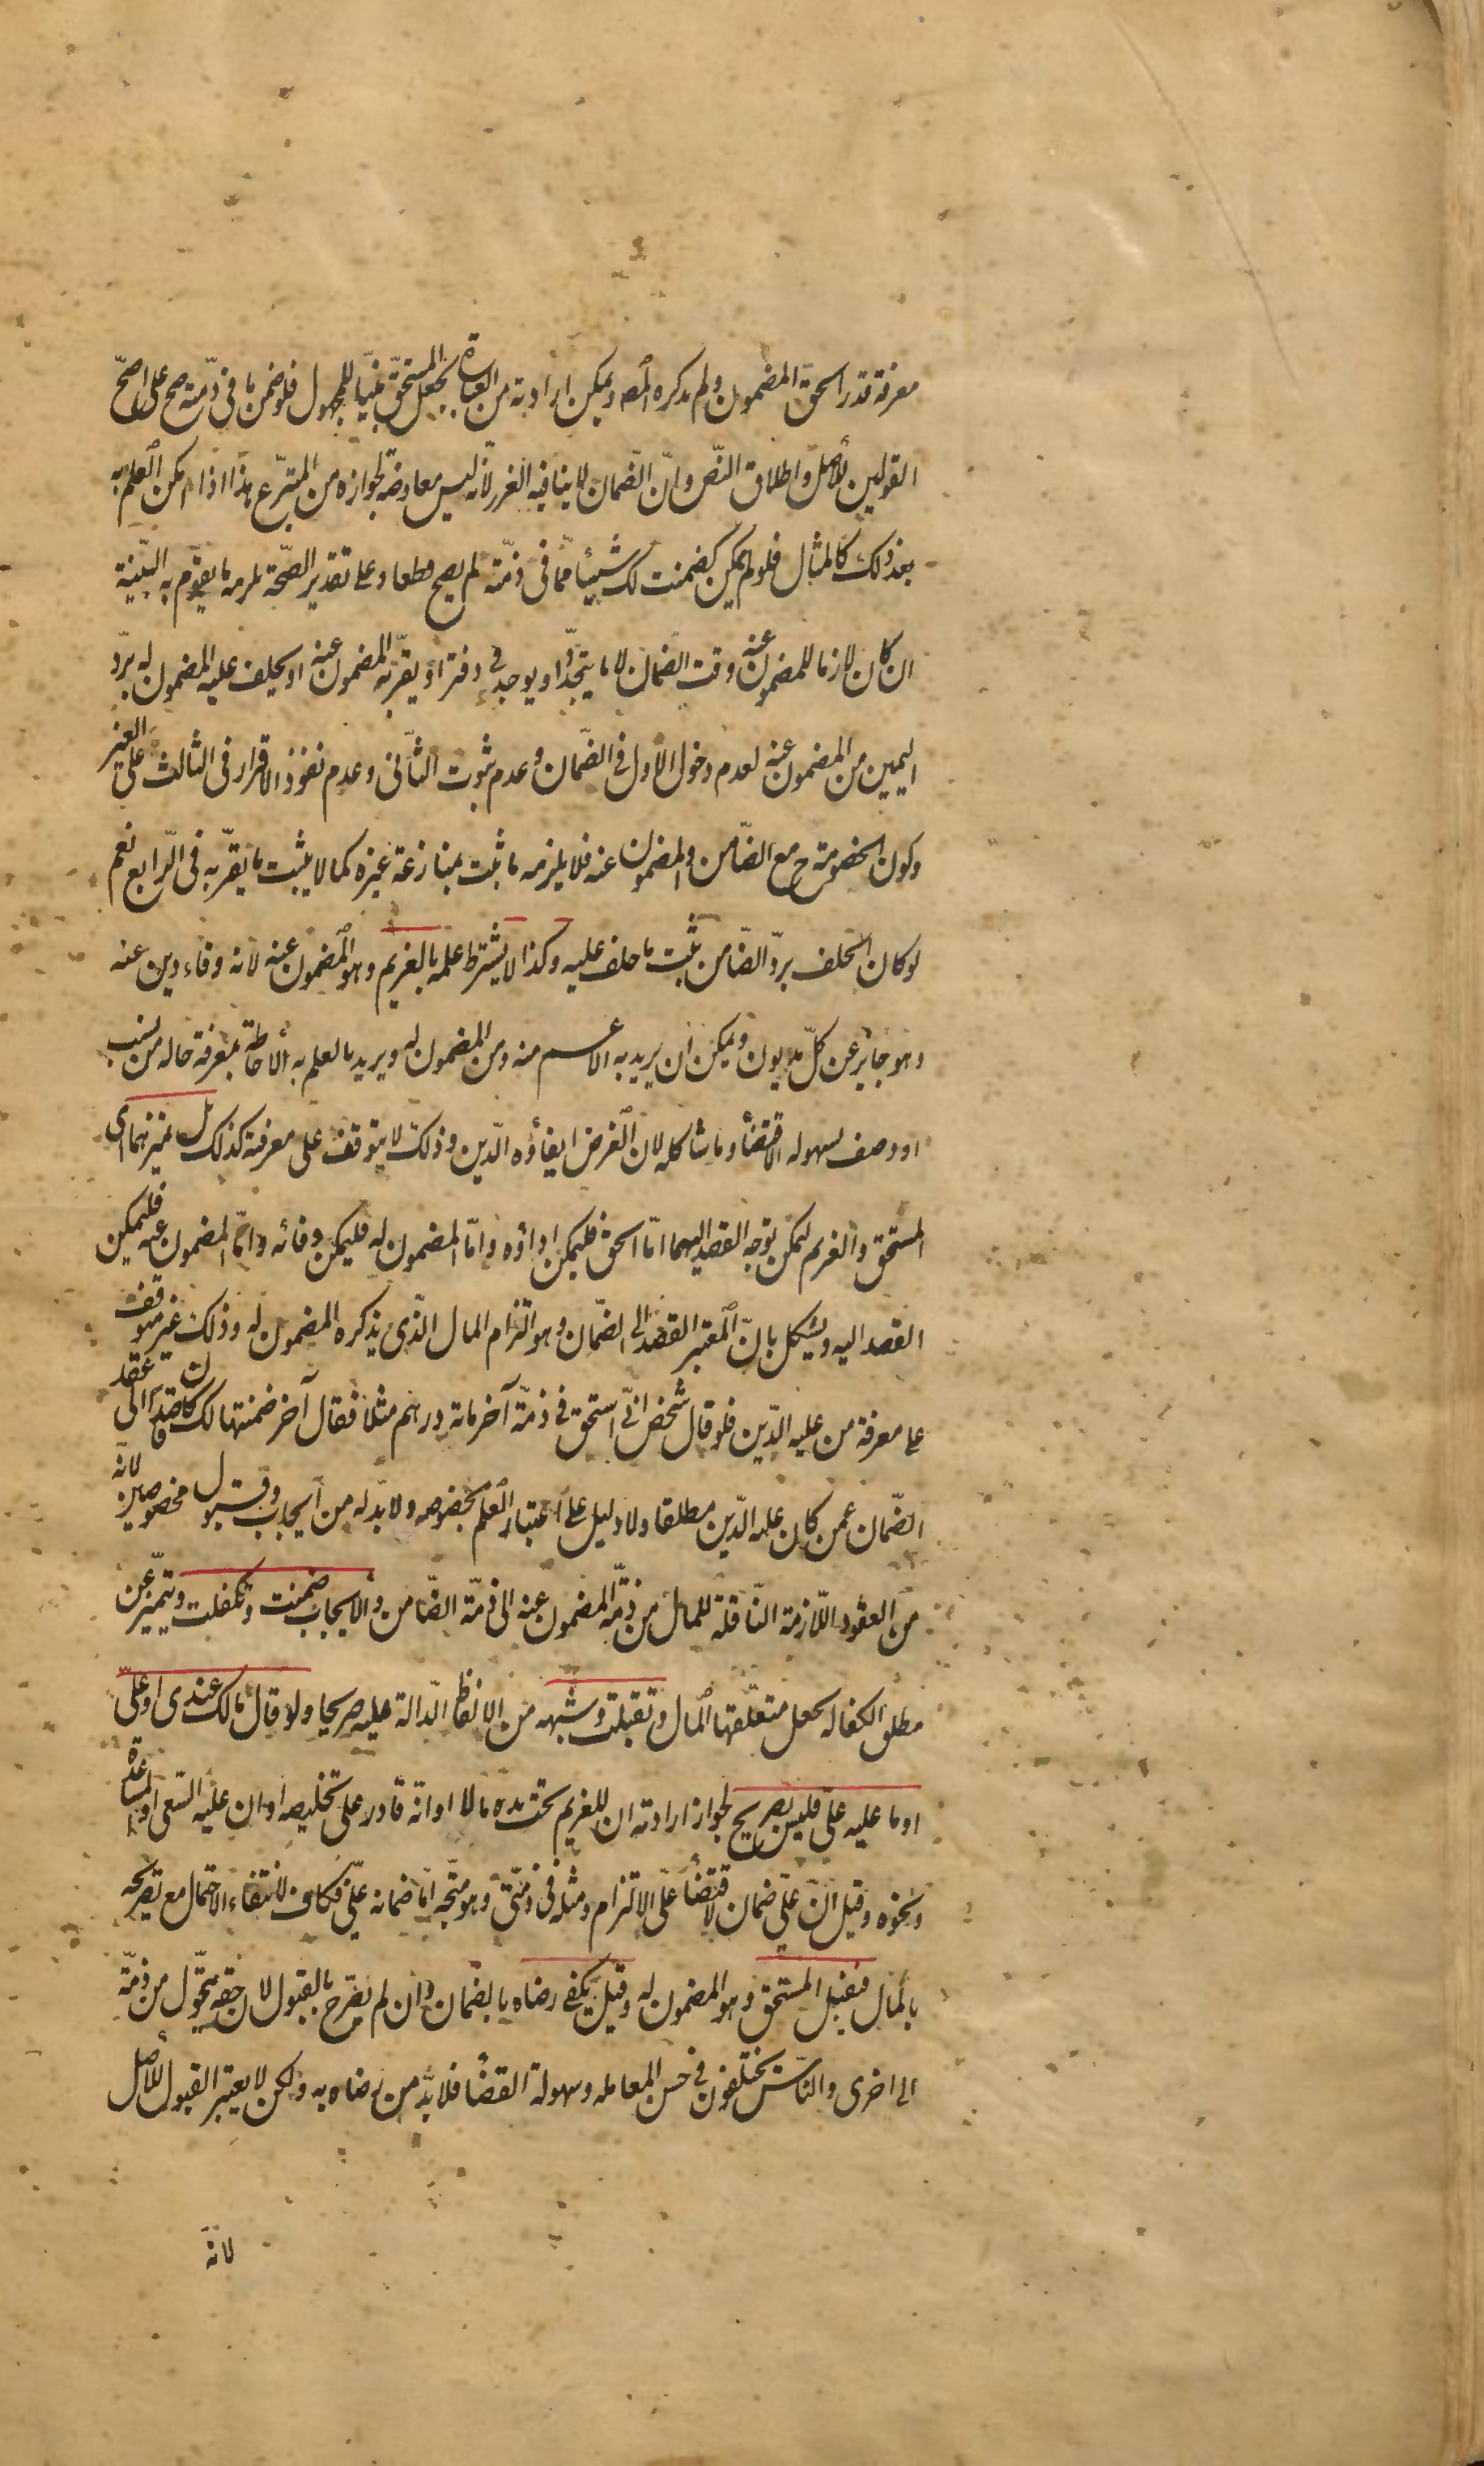 معرفة قدر الحق المضمون ولم يذكره المصـ ويمكن ارادته من العبارة بجعل المستحقّ مبنيّا للمجهول فلو ضمن ما فى ذمّته صح على اصحّ
القولين للأصل واطلاق النّص وانّ الضّمان لا ينافيه الغرر لانّه ليس معاوضة لجوازه من المتبرّع هذا اذا امكن العلم به
بعد ذلك كالمثال فلو لم يمكن كضمنت لك شيئا ممّا فى ذمّته لم يصح قطعا وعلى تقدير الصّحة يلزمه ما يقوم به البيّنة
ان كان لازما للمضمون عنه وقت الضمان لا ما يتجدّد او يوجد فى دفتر او يقرّ به المضمون عنه او يحلف عليه المضمون له بردّ
اليمين من المضمون عنه لعدم دخول الاول فى الضّمان وعدم ثبوت الثّانى وعدم نفوذ الاقرار فى الثالث على الغير
وكون الخصومة ح مع الضّامن والمضمون عنه فلا يلزمه ما ثبت بمنازعة غيره كما لا يثبت ما يقرّ به فى الرّابع نعم
لو كان الحلف بردّ الضّامن ثبت ما حلف عليه وكذا لا يشترط علمه بالغريم وهو المضمون عنه لانه وفاء دين عنه
وهو جائز عن كلّ مديون ويمكن ان يريد به الاعم منه ومن المضمون له ويريد بالعلم به الأحاطة بمعرفة حاله من نسب
او وصف لسهوله الاقتضأ وما شاكله لان الغرض ايفاؤه الدّين وذلك لا يتوقف على معرفته كذلك بل تميزهما اى
المستحق والغريم ليمكن توجه القصد اليهما امّا الحق فليمكن اداؤه وامّا المضمون له فليمكن وفائه وامّا المضمون عنه فليمكن
القصد اليه ويشكل بانّ المعتبر القصد الى الضمّان وهو التزام المال الّذى يذكره المضمون له وذلك غير موقوف
على معرفة من عليه الدّين فلو قال شخص انّى استحق فى ذمّة آخر مائة درهم مثلا فقال آخر ضمنتها لك كان قاصدا الى عقد
الضّمان عمن كان عليه الدّين مطلقا ولا دليل على اعتبار العلم بخصوصه ولا بدّ له من ايجاب وقبول مخصوصين لانّه
من العقود اللّازمة النّاقلة للمال من ذمّة المضمون عنه الى ذمّة الضّامن والأيجاب ضمنت وتكفلت ويتميّز عن
مطلق الكفاله بجعل متعلّقها المال وتقبلت وشبهه من الالفاظ الدّالة عليه صريحا ولو قال مالك عندى او علىّ
او ما عليه علىّ فليس بصريح لجواز ارادته ان للغريم تحت يده مالا او انّه قادر على تخليصه او ان عليه السّعى او المساعدة
ونحوه وقيل انّ علىّ ضمان لاقتضأ على الالتزام ومثله فى ذمّتى وهو متّجه امّا ضمانه علىّ فكاف لانتفاء الاحتمال مع تصريحه
بالمال فيقبل المستحق وهو المضمون له وقيل يكفى رضاه بالضمان وان لم يصّرح بالقبول لان حقه يتحوّل من ذمّة
الى اخرى والنّاس يختلفون فى حسن المعامله وسهولة القضأ فلا بدّ من رضاه به ولكن لا يعتبر القبول للأصل
لانه